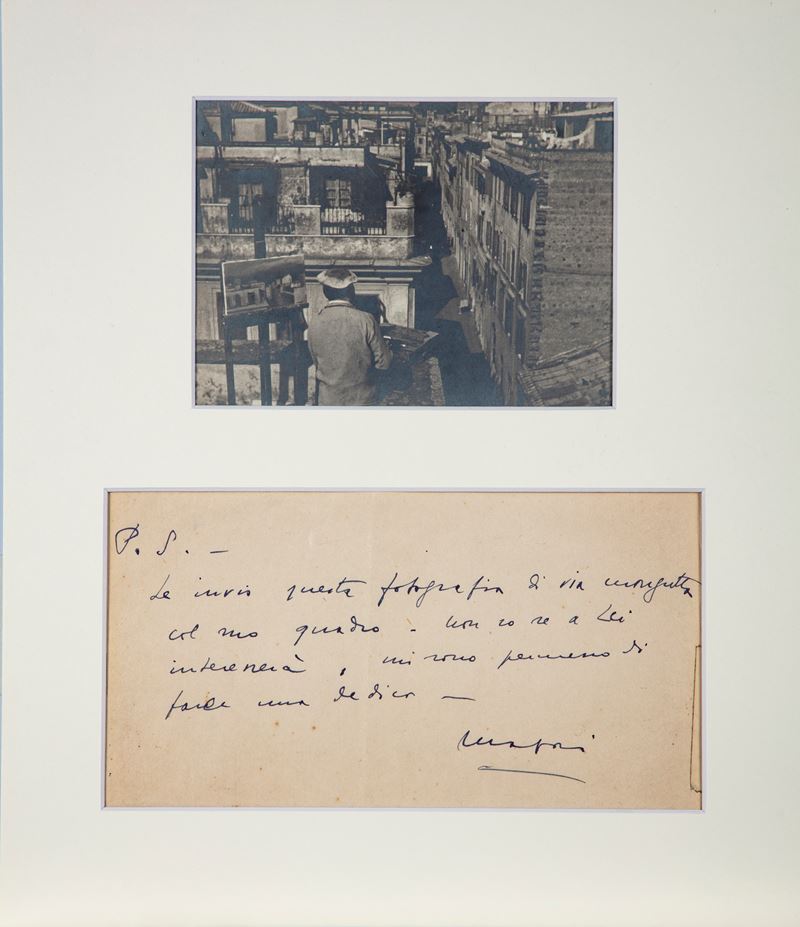 P. S. —
Le invio questa fotografia di via margutta
col suo quadro - non so se a Lei
interesserà, mi sono permesso di
farle una dedica —
Mafai